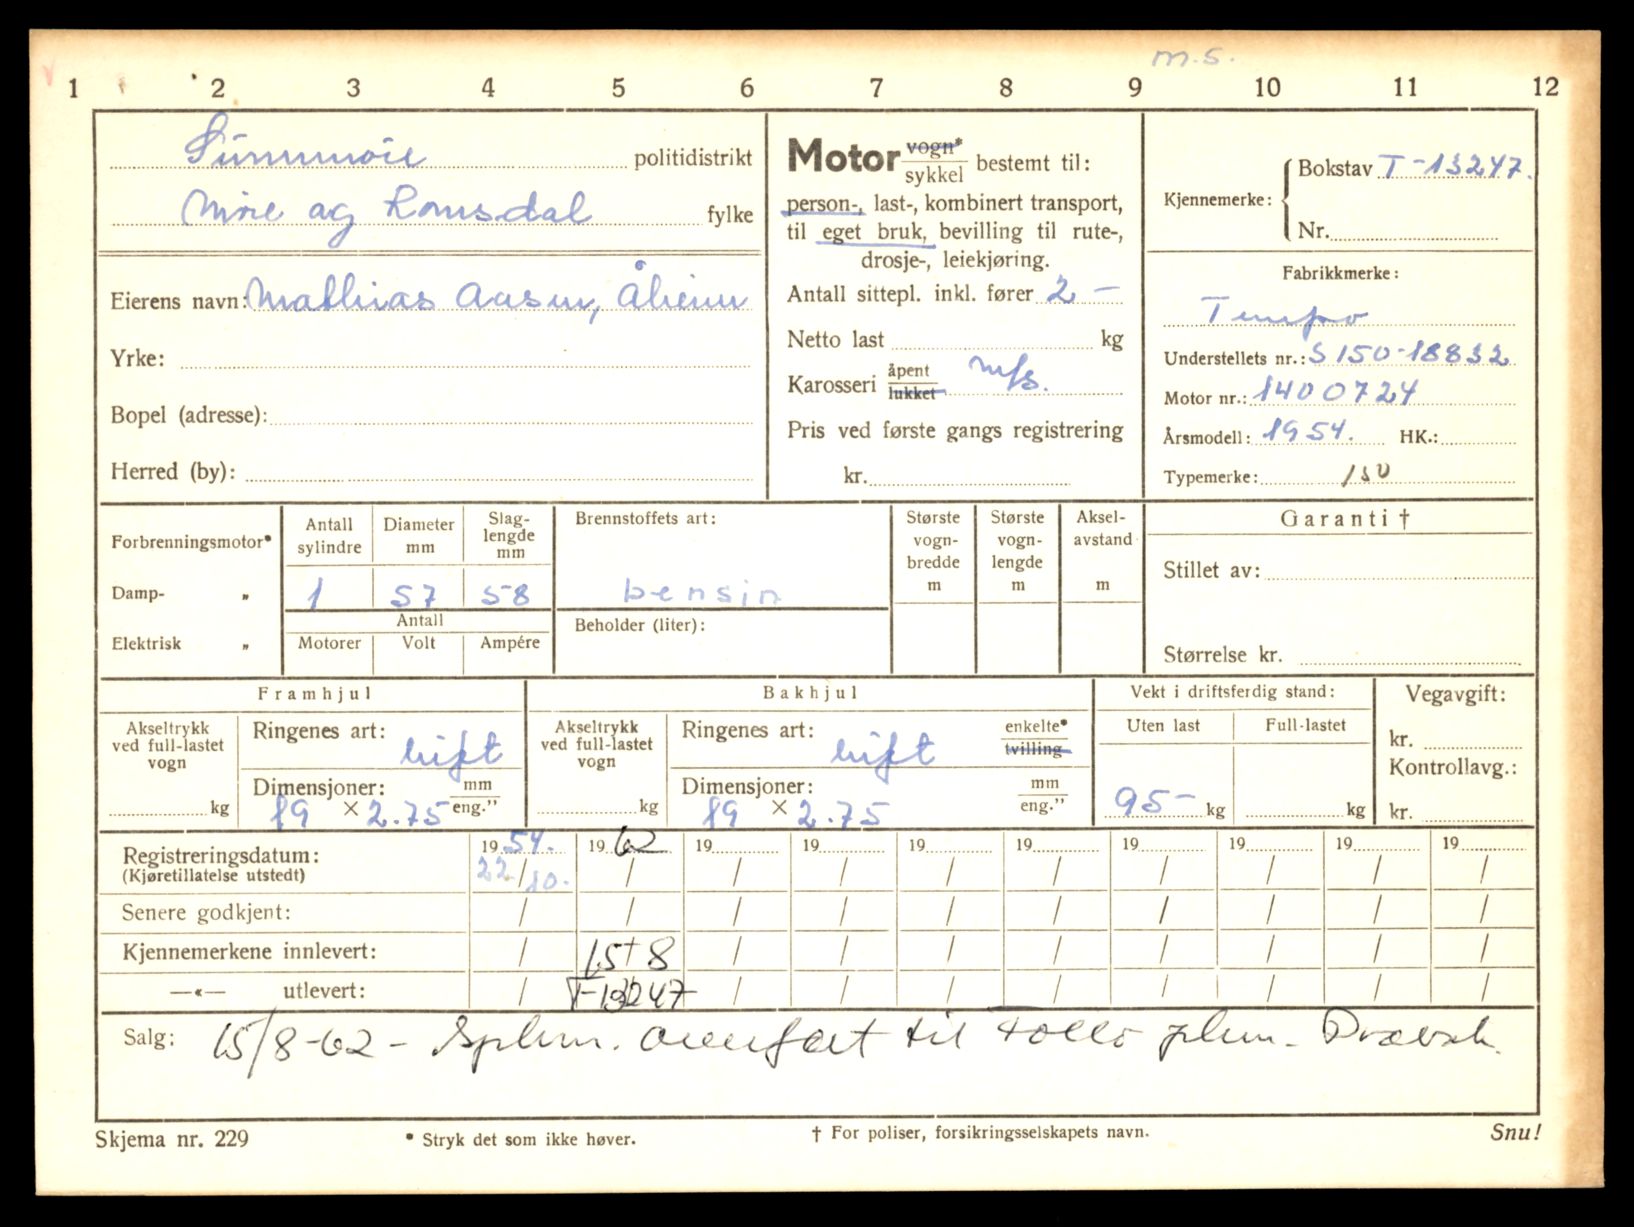 m.s.
1 2 3 4 5 6 7 8 9 10 11 12
Sunnmøre politidistrikt
Møre og Romsdal fylke
Eierens navn: Mathias Aasen, Åheim
Yrke:
Bopel (adresse):
Herred (by):
Motor vogn* sykkel bestemt til:
person-, last-, kombinert transport,
til eget bruk, bevilling til rute-,
drosje-, leiekjøring.
Antall sittepl. inkl. fører 2 –
Netto last kg
Karosseri åpent lukket m/s.
Pris ved første gangs registrering
kr.
Kjennemerke: Bokstav T-13247.
Nr.
Fabrikkmerke:
Tempo
Understellets nr.: S 150-18832
Motor nr.: 1400724
Årsmodell: 1954. HK.:
Typemerke: 150
Forbrenningsmotor*
Damp- „
Elektrisk „
Antall sylindre Diameter mm Slag-lengde mm
1 57 58
Antall
Motorer Volt Ampére
Brennstoffets art:
bensin
Beholder (liter):
Største vogn-bredde m
Største vogn-lengde m
Aksel-avstand m
Garanti †
Stillet av:
Størrelse kr.
Framhjul
Akseltrykk ved full-lastet vogn
kg
Ringenes art: luft
Dimensjoner: mm
19 × 2.75 eng.”
Bakhjul
Akseltrykk ved full-lastet vogn
kg
Ringenes art: luft enkelte* tvilling
Dimensjoner: mm
19 × 2.75 eng.”
Vekt i driftsferdig stand:
Uten last Full-lastet
95 – kg kg
Vegavgift:
kr.
Kontrollavg.:
kr.
Registreringsdatum: 19 54. 19 62 19 19 19 19 19 19 19 19
(Kjøretillatelse utstedt) 22/10. / / / / / / / / /
Senere godkjent: / / / / / / / / / /
Kjennemerkene innlevert: / 15/8 / / / / / / / /
—«— utlevert: / T-13247 / / / / / / / /
Salg: 15/8-62 – overført til Follo
Skjema nr. 229
* Stryk det som ikke høver.
† For poliser, forsikringsselskapets navn.
Snu!